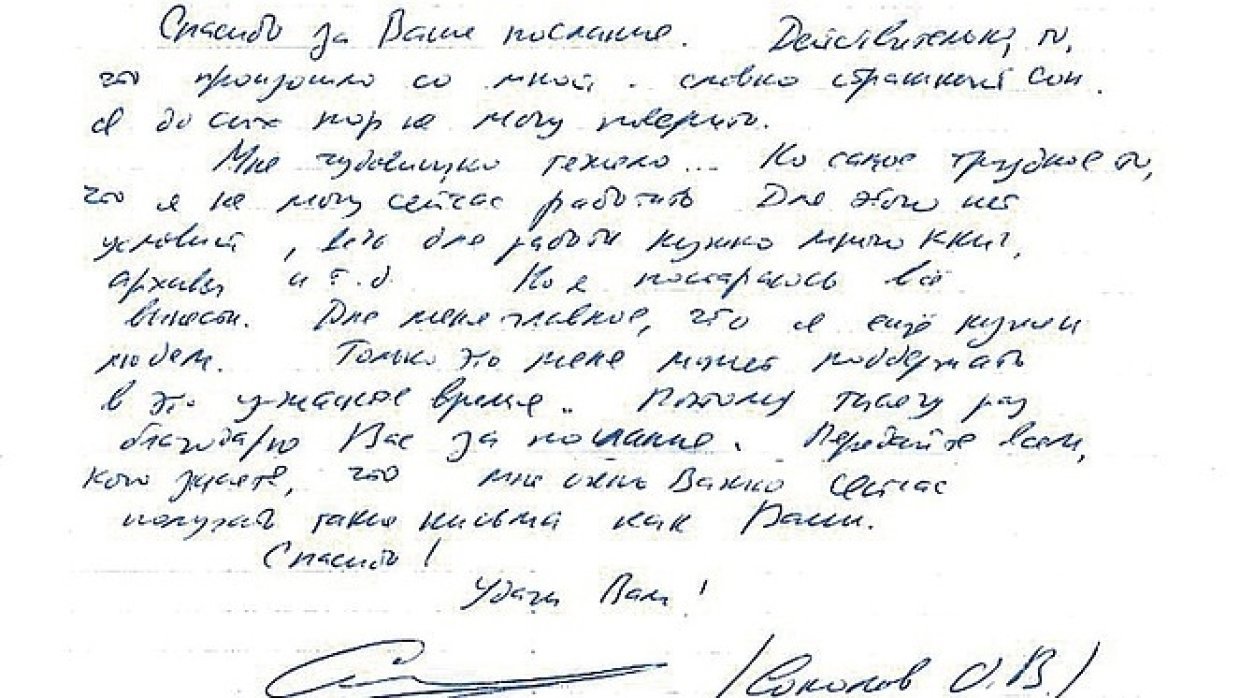 Спасибо за Ваше послание. Действительно, то,
что произошло со мной - словно страшный сон.
Я до сих пор не могу поверить.
Мне чудовищно тяжело... Но самое трудное то,
что я не могу сейчас работать. Для этого нет
условий, ведь для работы нужно много книг,
архивы и т.д. Но я постараюсь всё
вынести. Для меня главное, что я ещё нужен
людям. Только это меня может поддержать
в это ужасное время. Потому тысячу раз
благодарю Вас за послание. Передайте всем,
кого знаете, что мне очень важно сейчас
получать такие письма как Ваши.
Спасибо!
Удачи Вам!
/Соколов О.В/